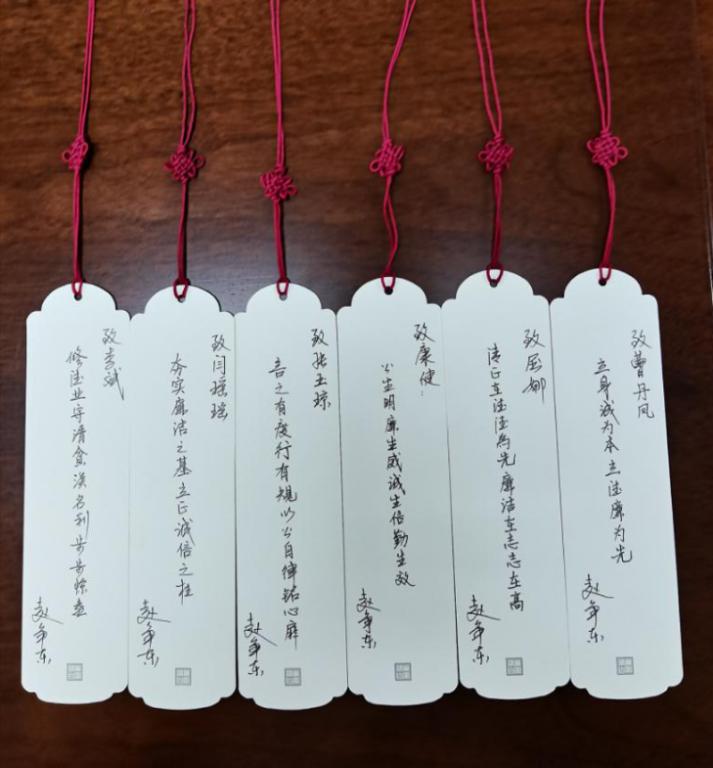 致曹丹凤
立身诚为本立德廉为先
赵争东
致屈娜
清正在德德为先廉洁在志志在高
赵争东
致康健：
公生明廉生威诚生信勤生效
赵争东
致张玉琼
言之有度行有规以公自律铭心扉
赵争东
致闫瑶瑶
夯实廉洁之基立正诚信之柱
赵争东
致李斌
修德业守清贪淡名利步步
赵争东